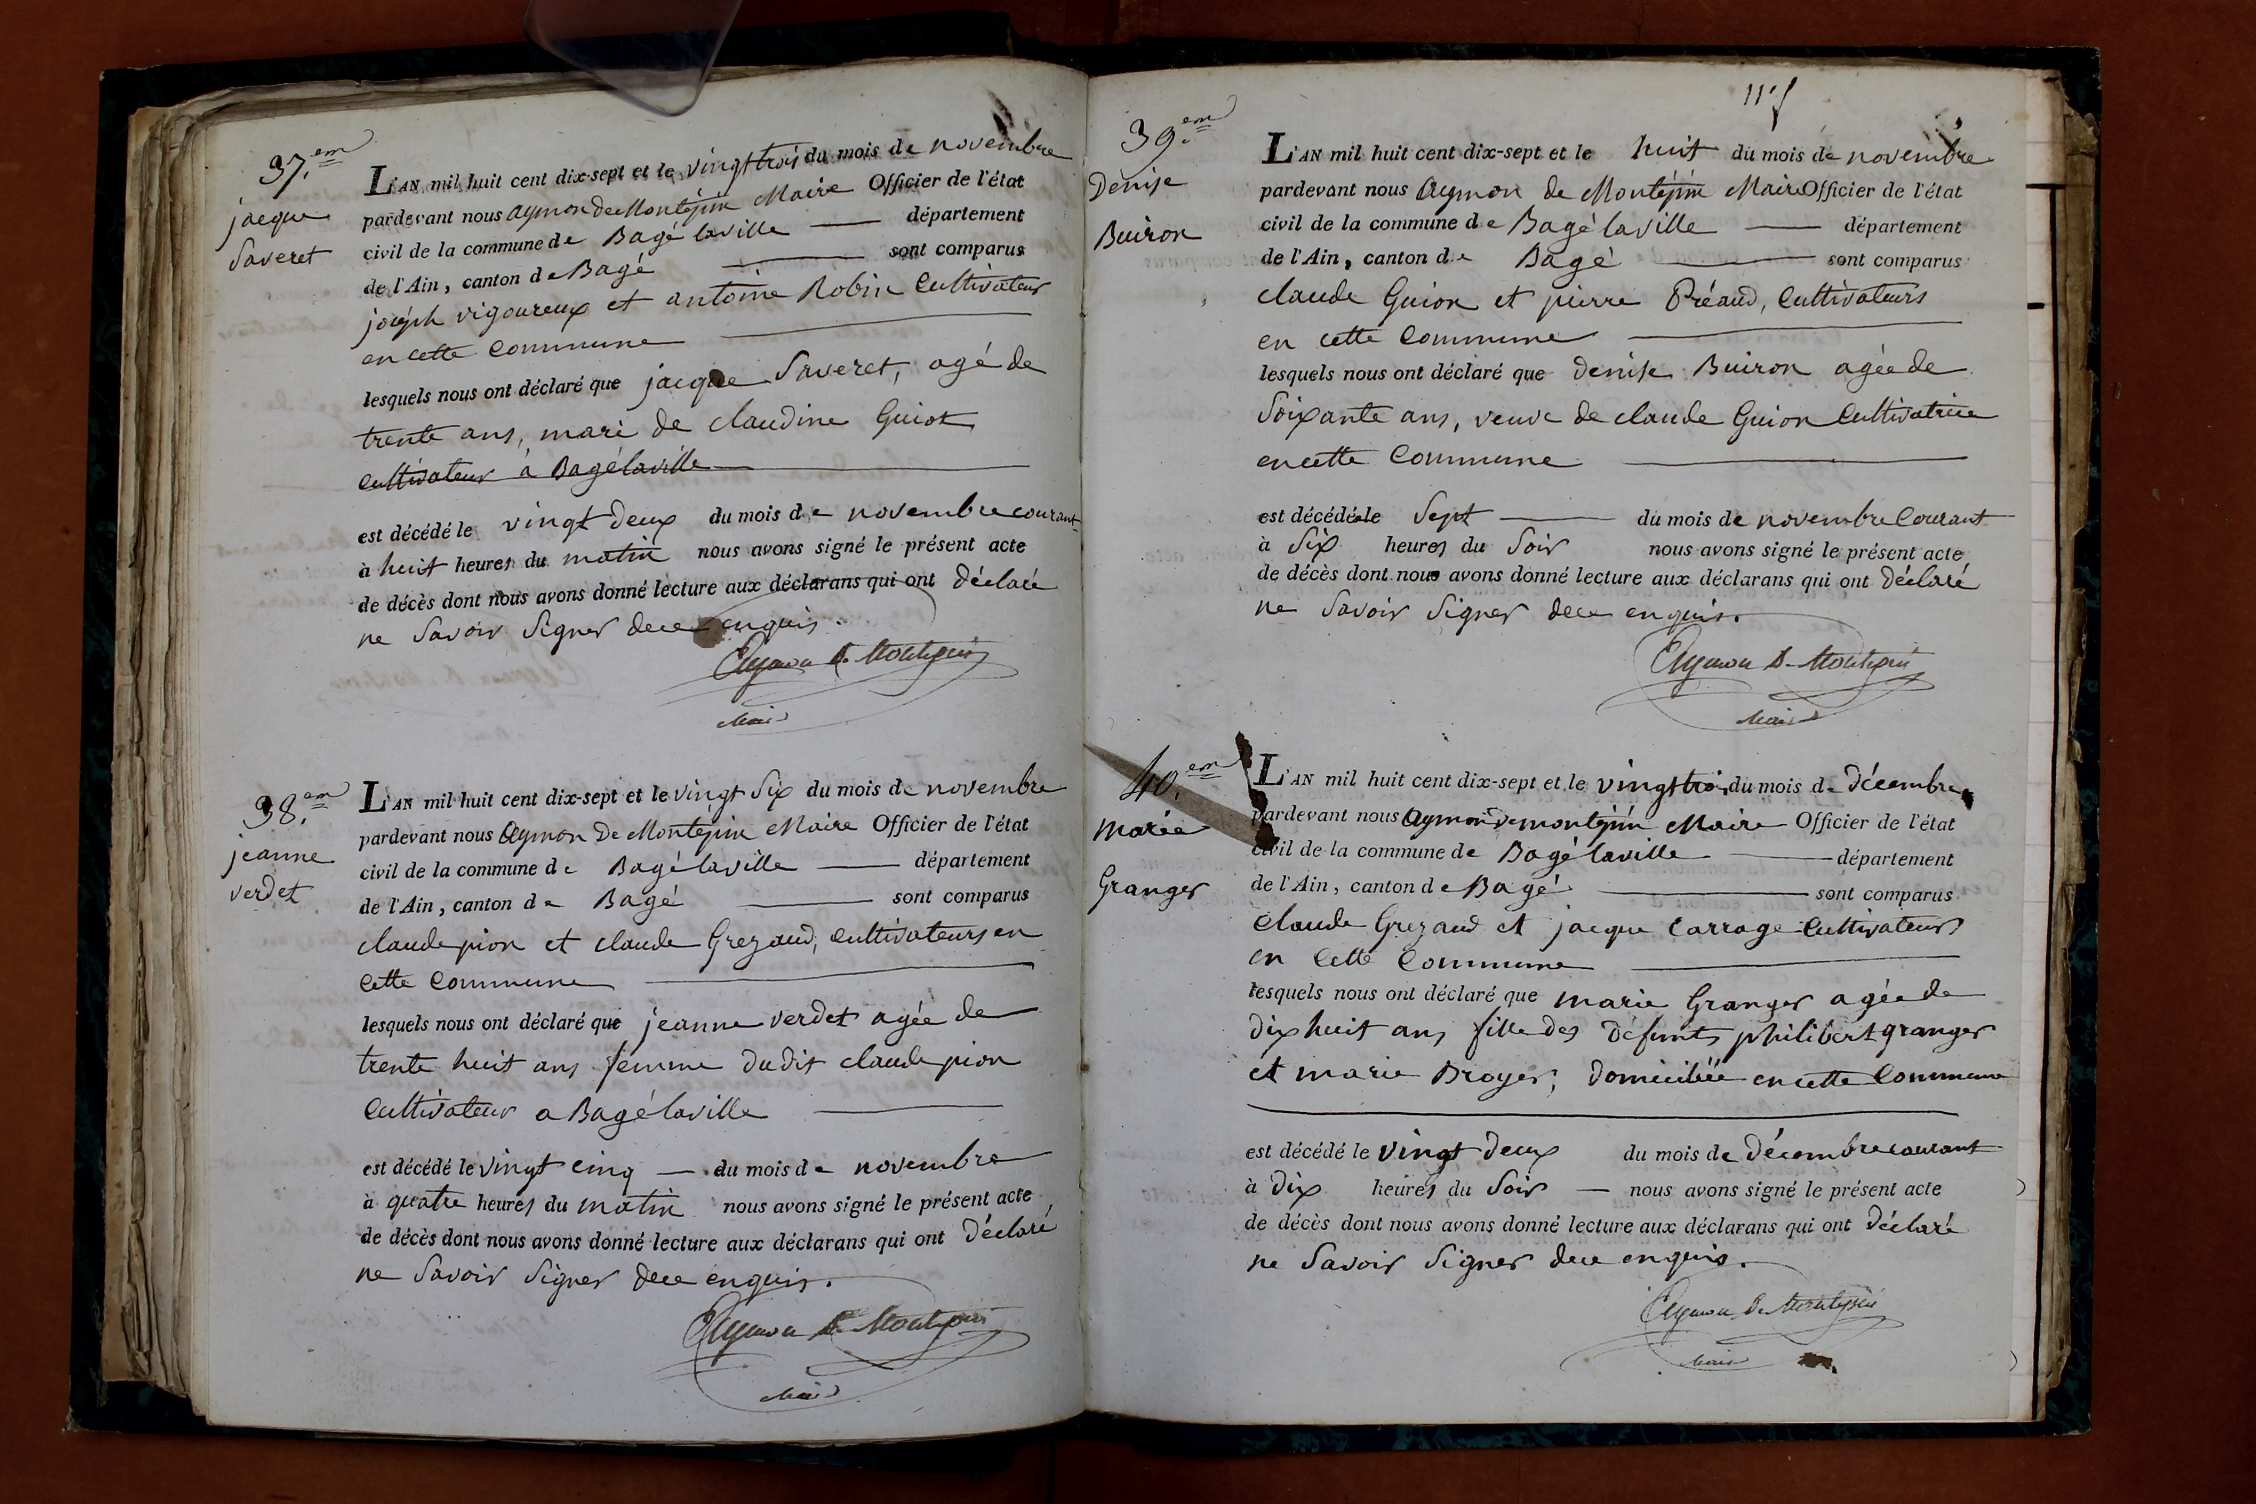 37.em
jacque
Saveret
L'AN mil huit cent dix-sept et le vingt trois du mois de novembre
pardevant nous aymon de Montépin Maire Officier de l'état
civil de la commune de Bagé laville département
de l'Ain, canton de Bagé sont comparus
joseph vigoureux et antoine Robin Cultivateur
en cette Commune
lesquels nous ont déclaré que jacque Saveret, agé de
trente ans, mari de claudine Guiot
Cultivateur à Bagélaville
est décédé le vingt deux du mois de novembre courant
à huit heures du matin nous avons signé le présent acte
de décès dont nous avons donné lecture aux déclarans qui ont déclaré
ne Savoir Signer de ce enquis.
Aymon de Montepin
Maire
38.em
jeanne
verdet
L'AN mil huit cent dix-sept et le vingt Six du mois de novembre
pardevant nous Aymon De Montépin Maire Officier de l'état
civil de la commune de Bagé laville département
de l'Ain, canton de Bagé sont comparus
claude pion et claude Grezaud, cultivateurs en
Cette Commune
lesquels nous ont déclaré que jeanne verdet agée de
trente huit ans femme dudit claude pion
Cultivateur a Bagé laville
est décédé le vingt cinq du mois de novembre
à quatre heures du matin nous avons signé le présent acte
de décès dont nous avons donné lecture aux déclarans qui ont Déclaré
ne Savoir Signer de ce enquis.
Aymon de Montepin
Maire
39.em
Denise
Buiron
L'AN mil huit cent dix-sept et le huit du mois de novembre
pardevant nous Aymon de Montépin Maire Officier de l'état
civil de la commune de Bagé laville département
de l'Ain, canton de Bagé sont comparus
claude Guion et pierre Préaud, Cultivateurs
en cette Commune
lesquels nous ont déclaré que denise Buiron agée de
Soixante ans, veuve de claude Guion Cultivatrice
en cette Commune
est décédé le Sept du mois de novembre Courant
à Six heures du Soir nous avons signé le présent acte
de décès dont nous avons donné lecture aux déclarans qui ont déclaré
ne Savoir Signer de ce enquis.
Aymon de Montepin
Maire
40.em
marie
Granger
L'AN mil huit cent dix-sept et le vingt trois du mois de Décembre
pardevant nous Aymon de montépin Maire Officier de l'état
civil de la commune de Bagé laville département
de l'Ain, canton de Bagé sont comparus
Claude Grezaud et jacque Carrage Cultivateurs
en Cette Commune
lesquels nous ont déclaré que marie Granger agée de
dix huit ans fille des défunts philibert granger
et marie Broyer, domiciliée en cette Commune
est décédé le vingt deux du mois de Décembre courant
à dix heures du Soir nous avons signé le présent acte
de décès dont nous avons donné lecture aux déclarans qui ont déclaré
ne Savoir Signer de ce enquis.
Aymon de Montepin
Maire